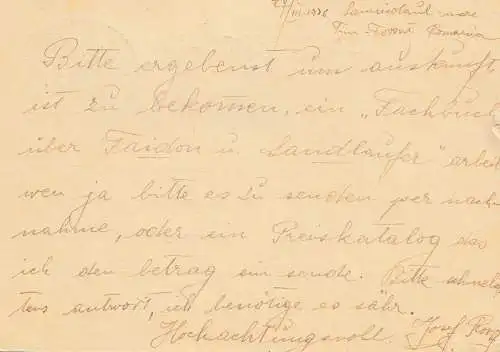 24/III.1936 Sannicolaul mare
Timi-Toront Romania
Bitte ergebenst um auskunft
ist zu bekomen, ein „Fachbuch
über Faidon u. Landlaufer" arbeit
wen ja bitte es zu senden per nach
nahme, oder ein Preiskatalog das
ich den betrag ein sende. Bitte schnels
tens antwort, ich benötige es sähr.
Hochachtungsvoll. Josef